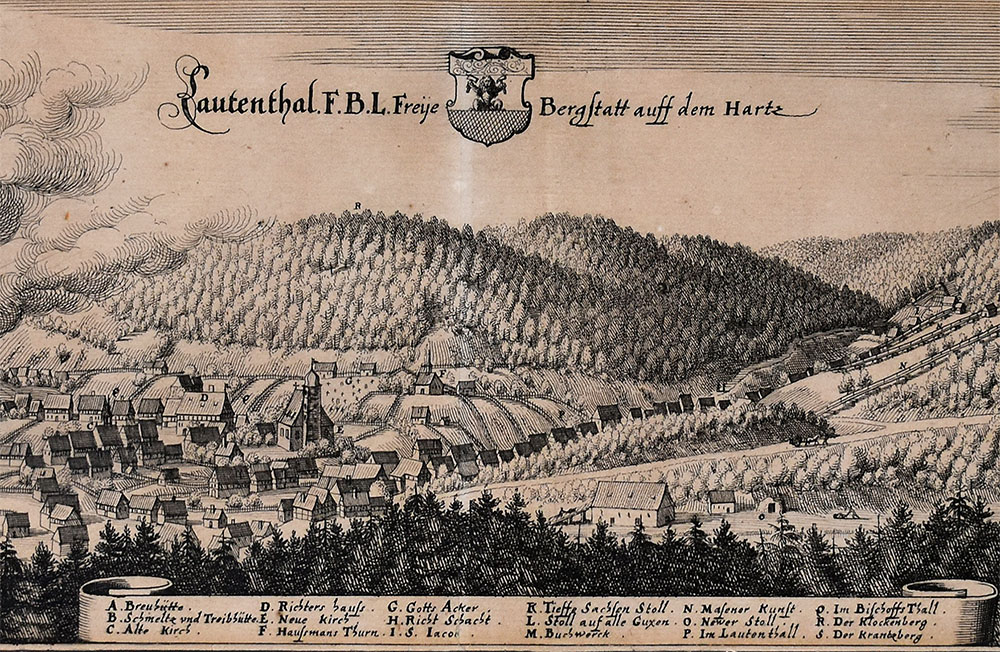 Lautenthal. F. B. L. Freije Bergstatt auff dem Hartz
R
A. Breuhütte.
B. Schmeltz vnd Treibhütte.
C. Alte Kirch
D. Richters hauss.
E. Neue Kirch
F. Hausmans Thurn.
G. Gotts Acker
H. Richt Schacht.
I. S. Iacob
R. Tieffe Sachsen Stoll.
L. Stoll auf alle Guxen.
M. Buchwerck.
N. Masener Kunst.
O. Newer Stoll
P. Im Lautenthall.
Q. Im Bischoffs Thall.
R. Der Klockenberg.
S. Der Krantzberg.